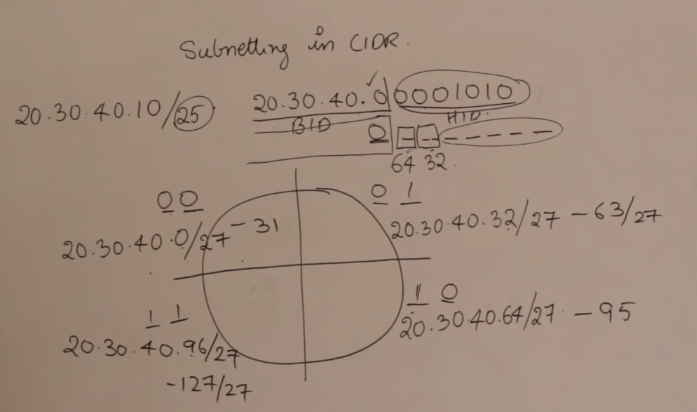 Subnetting in CIDR.
20.30.40.10/25
20.30.40.0 0001010
BID
HID
0 - - - - - - -
64 32.
0 0
20.30.40.0/27 - 31
0 1
20.30.40.32/27 - 63/27
1 0
20.30.40.64/27 - 95
1 1
20.30.40.96/27
-127/27